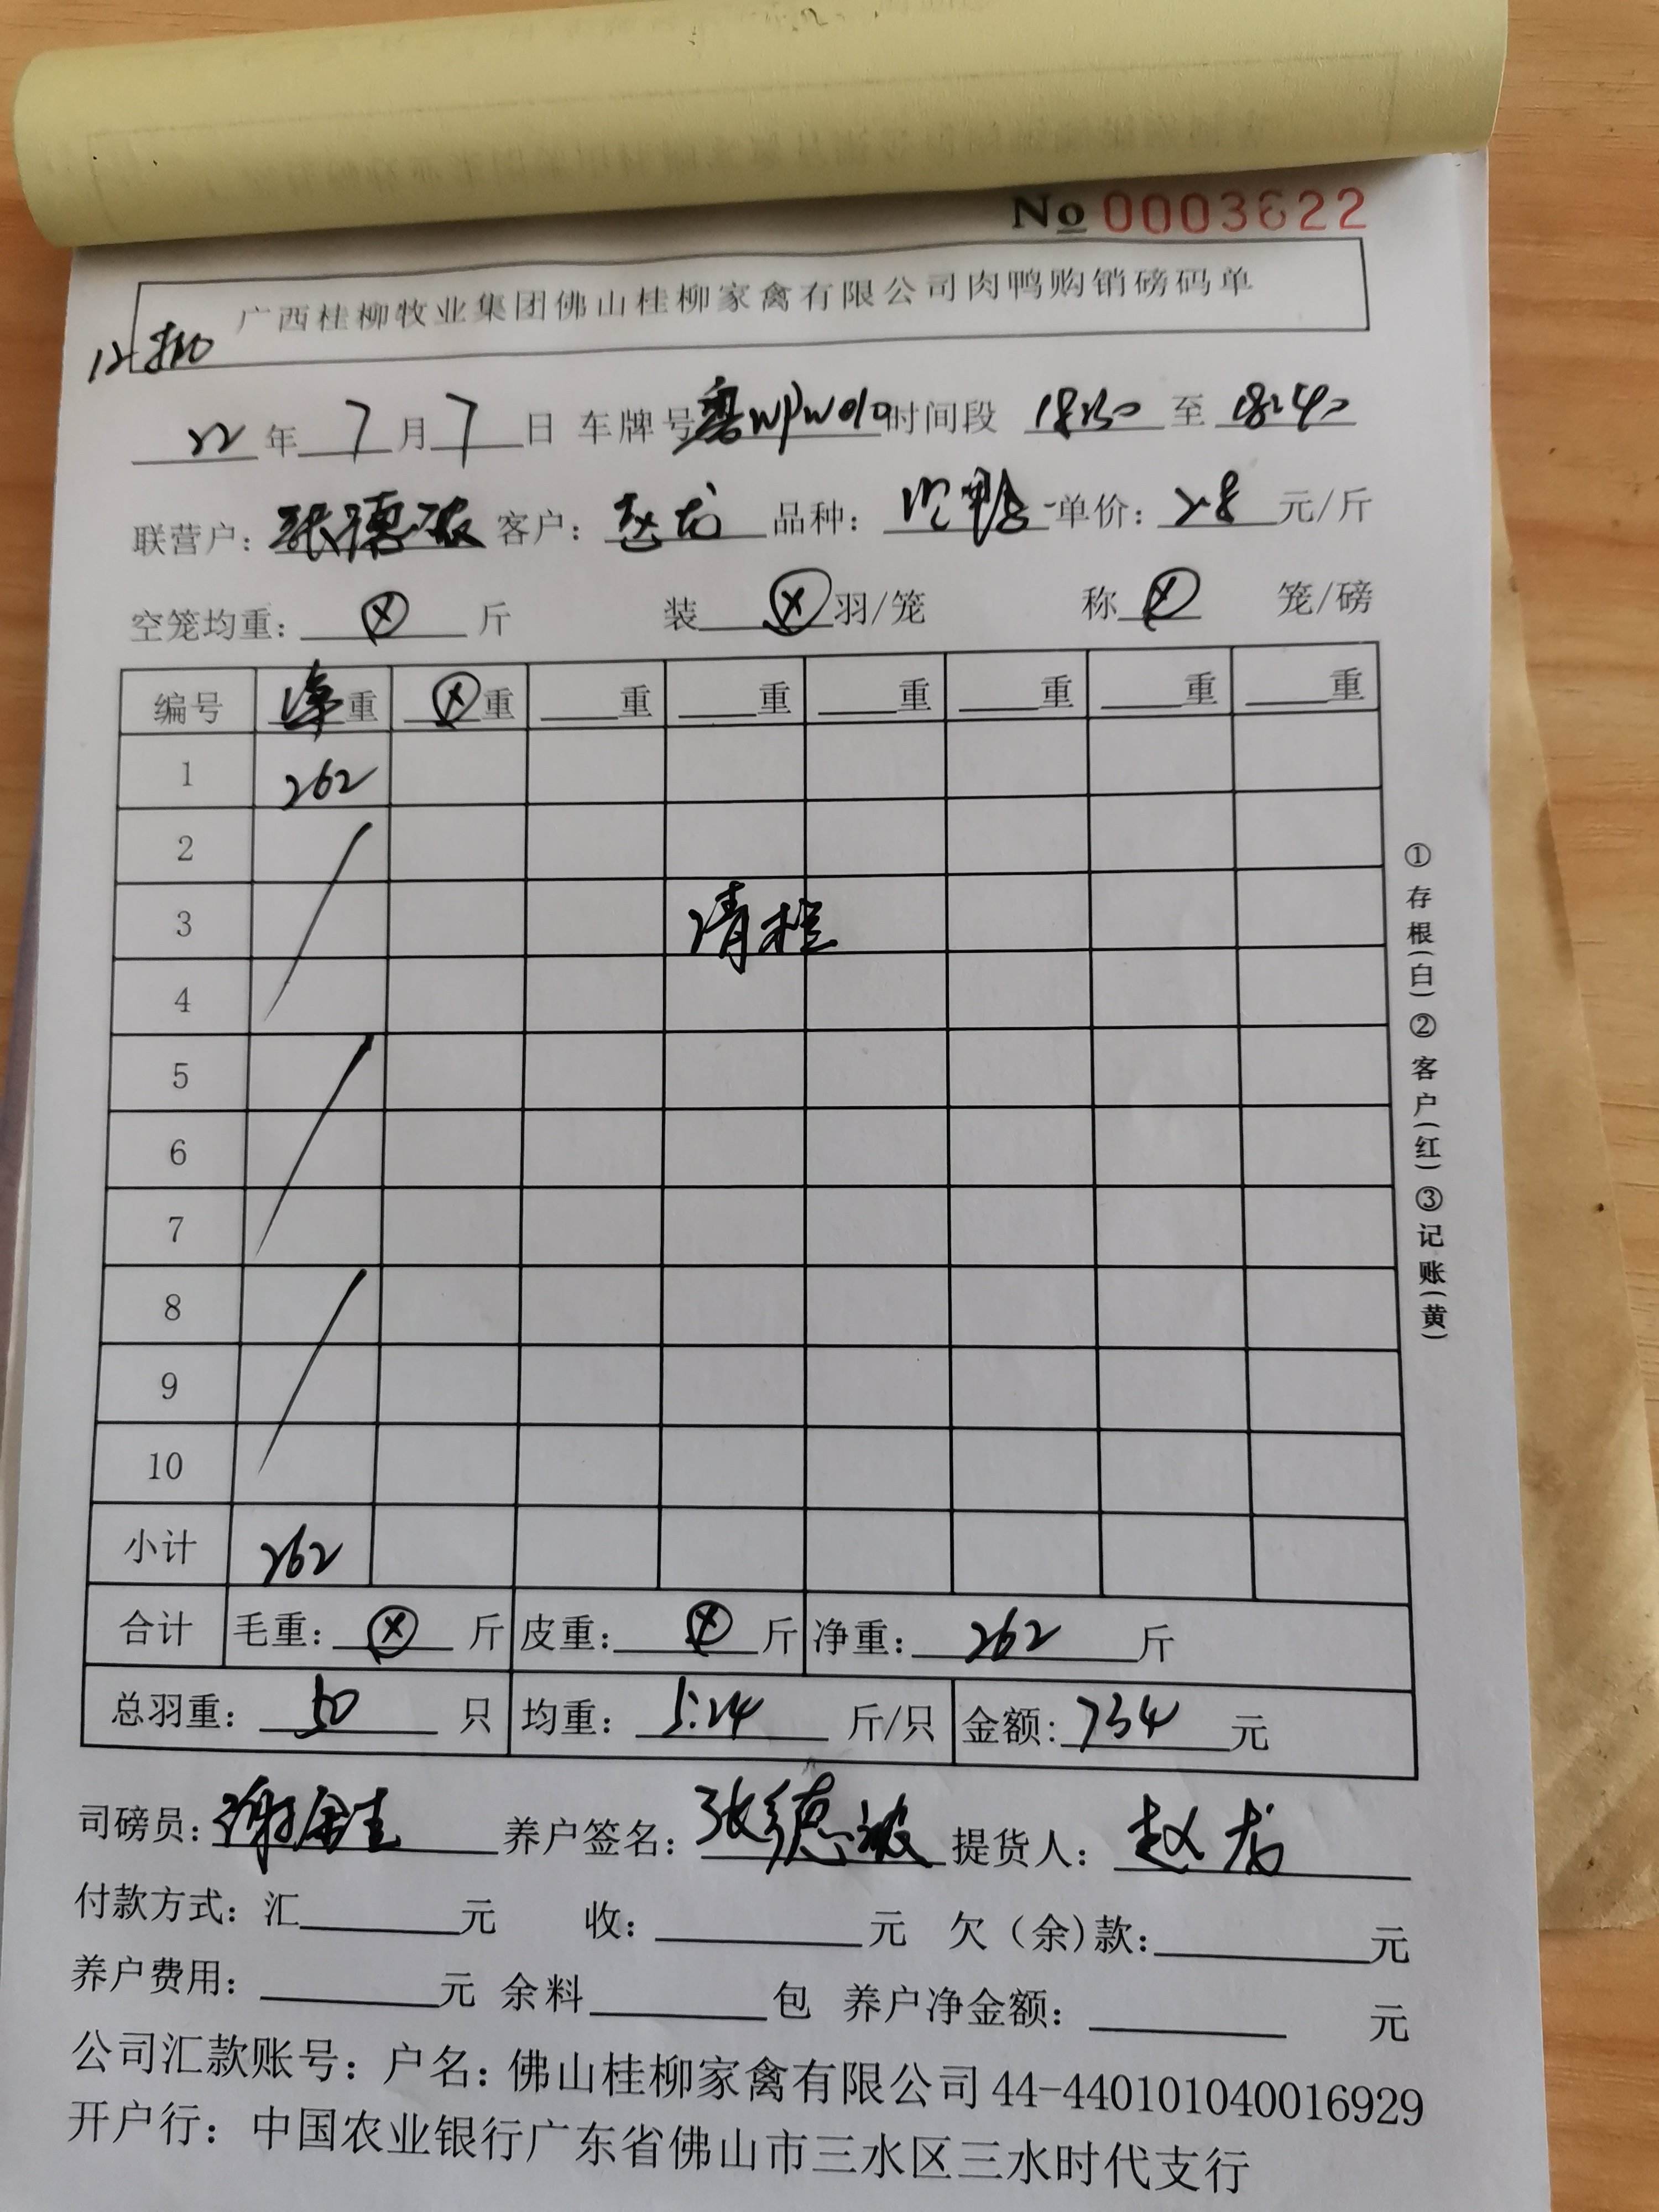 No 0003622
广西桂柳牧业集团佛山桂柳家禽有限公司肉鸭购销磅码单
22年7月7日 车牌号 时间段 18:30 至 18:40
联营户: 张德波 客户: 赵龙 品种: 鸭 单价: 2.8 元/斤
空笼均重: ⓧ 斤 装 ⓧ 羽/笼 称 ⓧ 笼/磅
编号 净重 ⓧ重 重 重 重 重 重 重
1 262
2
3 清栏
4
5
6
7
8
9
10
小计 262
合计 毛重: ⓧ 斤 皮重: ⓧ 斤 净重: 262 斤
总羽重: 50 只 均重: 5.24 斤/只 金额: 734 元
司磅员: 谢 养户签名: 张德波 提货人: 赵龙
付款方式: 汇 元 收: 元 欠(余)款: 元
养户费用: 元 余料 包 养户净金额: 元
公司汇款账号: 户名: 佛山桂柳家禽有限公司 44-440101040016929
开户行: 中国农业银行广东省佛山市三水区三水时代支行
①存根(白)②客户(红)③记账(黄)